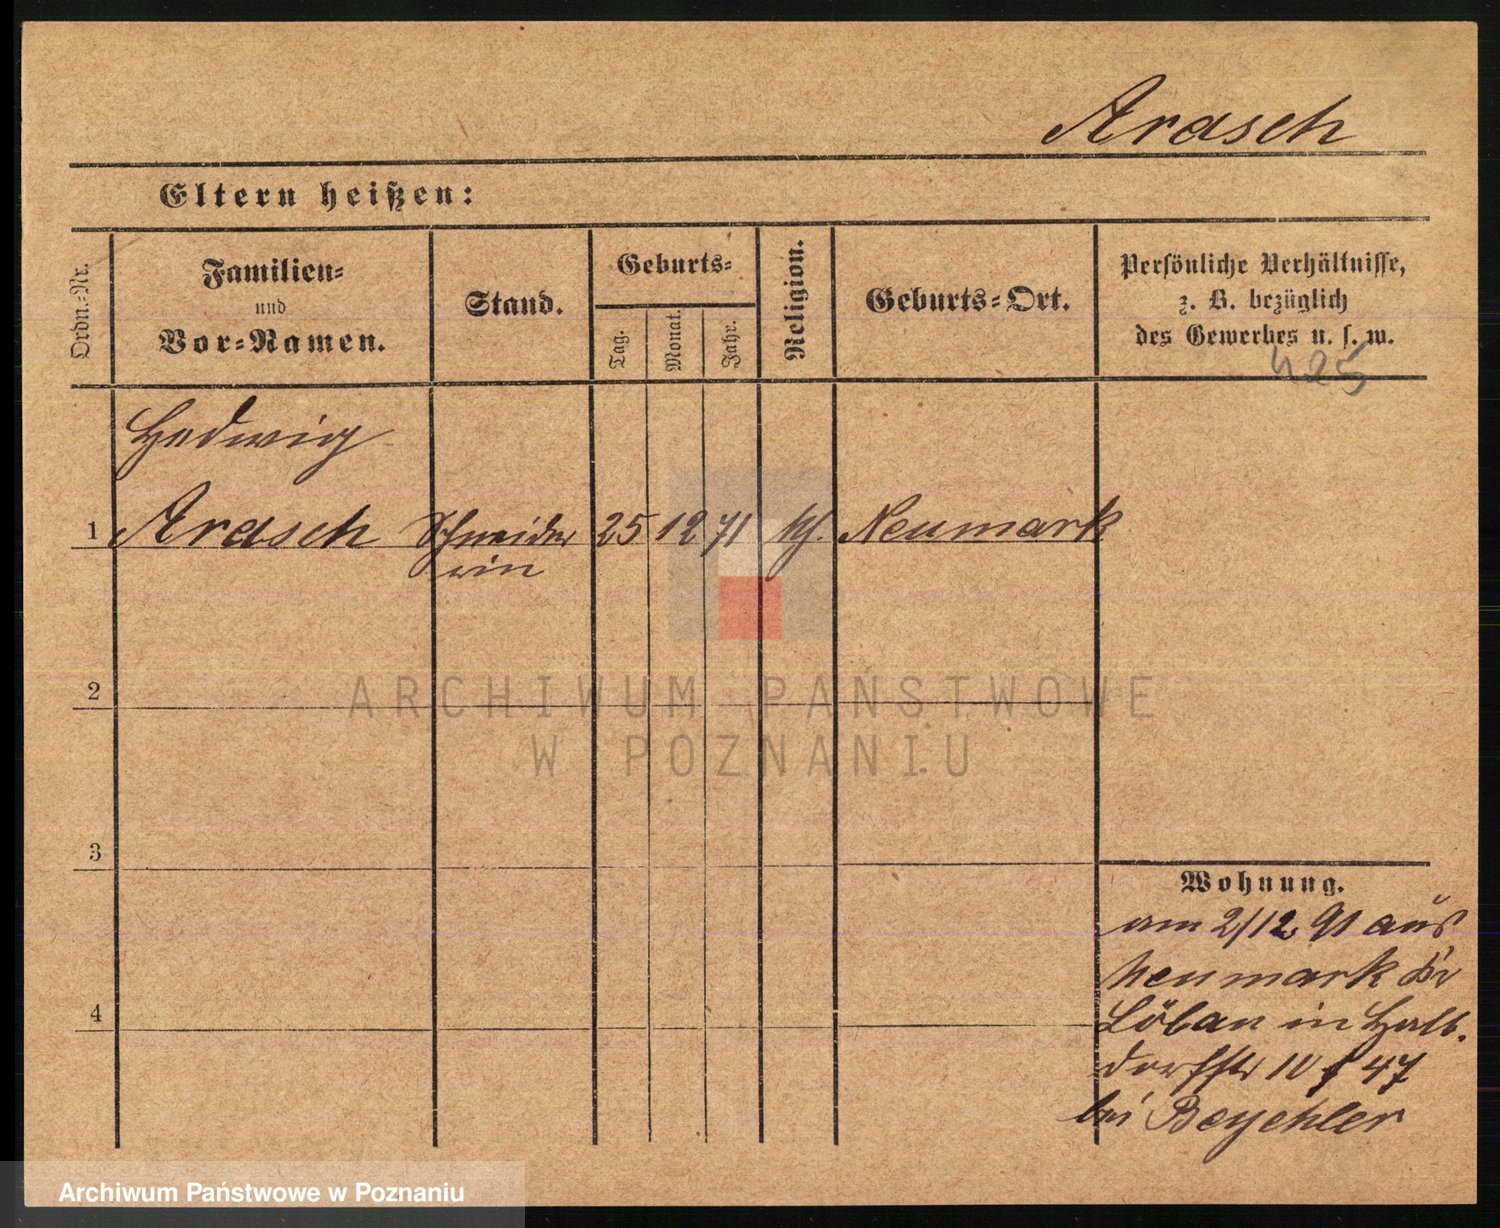 Arasch
Eltern heißen:
Ordn.-Nr.
Familien-
und
Vor-Namen.
Stand.
Geburts-
Tag.
Monat.
Jahr.
Religion.
Geburts-Ort.
Persönliche Verhältnisse,
z. B. bezüglich
des Gewerbes u. s. w.
425
Hedwig
1 Arasch Schneider 25 12 71 kth. Neumark
rin
2
ARCHIWUM PAŃSTWOWE
W POZNANIU
3
Wohnung.
am 2/12 91 aus
Neumark Kr
4
Löbau in Halb.
dorffstr 10 f 47
bei Beyehler
Archiwum Państwowe w Poznaniu